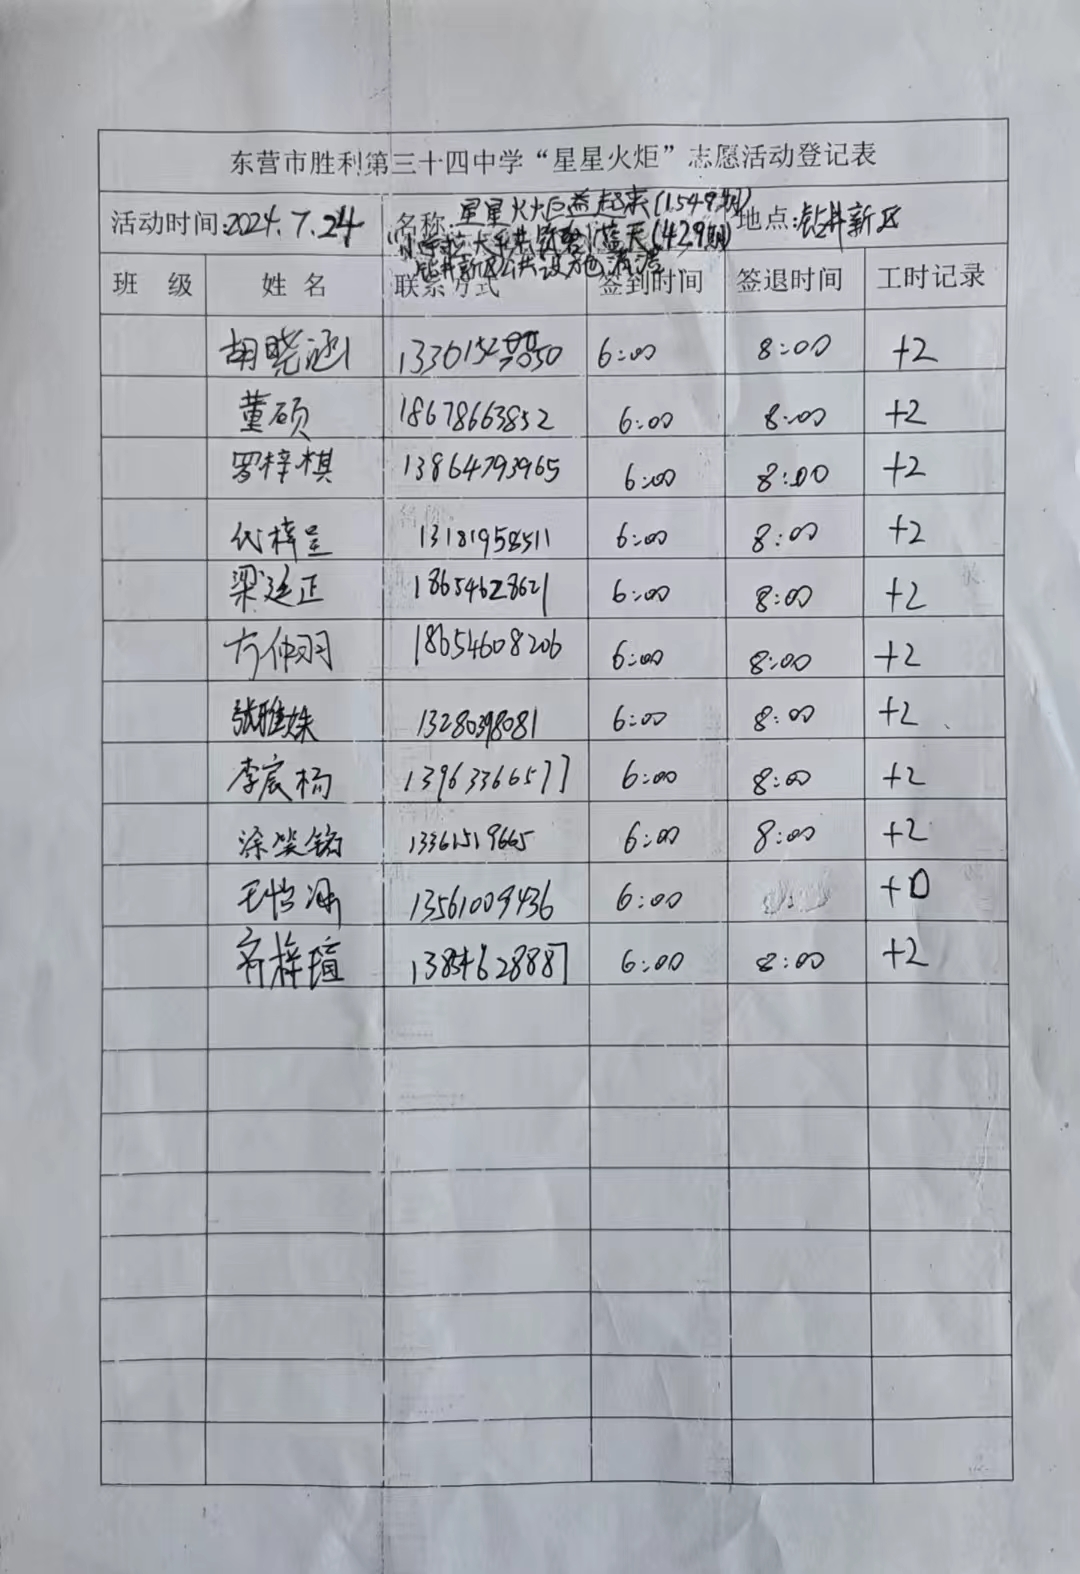 东营市胜利第三十四中学“星星火炬”志愿活动登记表
活动时间:2024.7.24 名称:星星火炬益起来(1549期) 地点:钻井新区
蓝天(429期)
钻井新区公共设施清洁
班 级 姓 名 联系方式 签到时间 签退时间 工时记录
胡晓涵 6:00 8:00 +2
董硕 18678663852 6:00 8:00 +2
罗梓棋 13864793965 6:00 8:00 +2
代梓呈 13181958511 6:00 8:00 +2
梁延正 18654628621 6:00 8:00 +2
方仲羽 18654608206 6:00 8:00 +2
张雅姝 13280398081 6:00 8:00 +2
李宸杨 13963366577 6:00 8:00 +2
涂笑铭 13361519665 6:00 8:00 +2
王怡 13561009436 6:00 +0
齐梓瑄 13854628887 6:00 8:00 +2